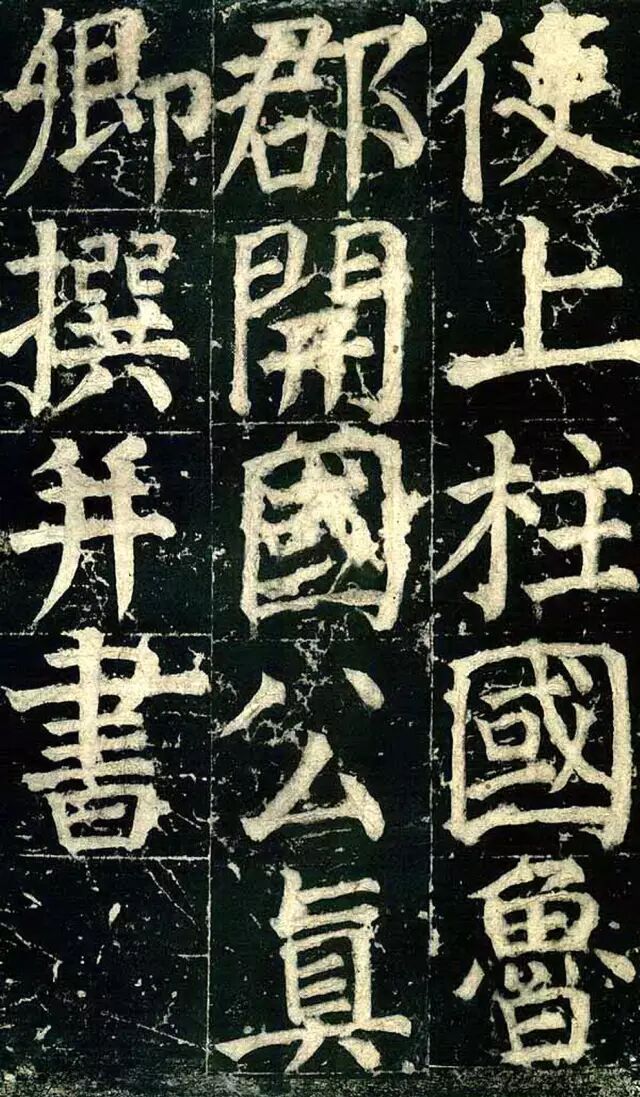 使上柱國魯
郡開國公真
卿撰并書